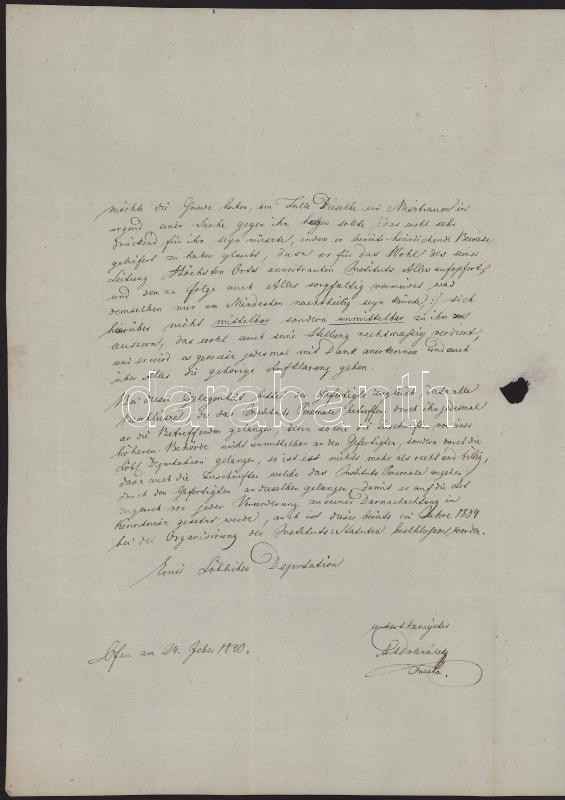 möchte die Gnade haben, im Falle Dieselbe ein Misstrauen in
irgend einer Sache gegen ihn hegen sollte /:das wohl sehr
drückend für ihn seyn müsste, indem er bereits hinreichende Beweise
geliefert zu haben glaubt, dass er für das Wohl des seiner
Leitung Höchsten Orts anvertrauten Instituts Alles aufopfert,
und dem zu folge auch Alles sorgfältig vermeidet was
demselben nur im Mindesten nachtheilig seyn könnte:/ sich
hierüber nicht mittelbar sondern unmittelbar zu ihm zu
äussern, das wohl auch seine Stellung rechtmässig verdient,
und er wird es gewiss jedesmal mit Dank anerkennen und auch
über Alles die gehörige Aufklärung geben.
Bei dieser Gelegenheit bittet der Gefertigte zugleich, dass alle
Beschlüsse die das Instituts Personale betreffen durch ihn jedesmal
an die Betreffenden gelangen, denn so wie die Zuschriften von einer
höheren Behörde nicht unmittelbar an den Gefertigten, sondern durch die
Löbl Deputation gelangen, so ist es nichts mehr als recht und billig,
dass auch die Zuschriften welche das Instituts Personale angehen
durch den Gefertigten an dieselben gelangen, damit er auf die Art
zugleich von jeder Veränderung zu seiner Darnachachtung in
Kenntniss gesetzt werde, auch ist dieses bereits im Jahre 1834
bei der Organisirung der Instituts-Statuten beschlossen worden.
Einer Löblichen Deputation
unterthänigster
Ofen am 24. Feber 1840.
darabanth